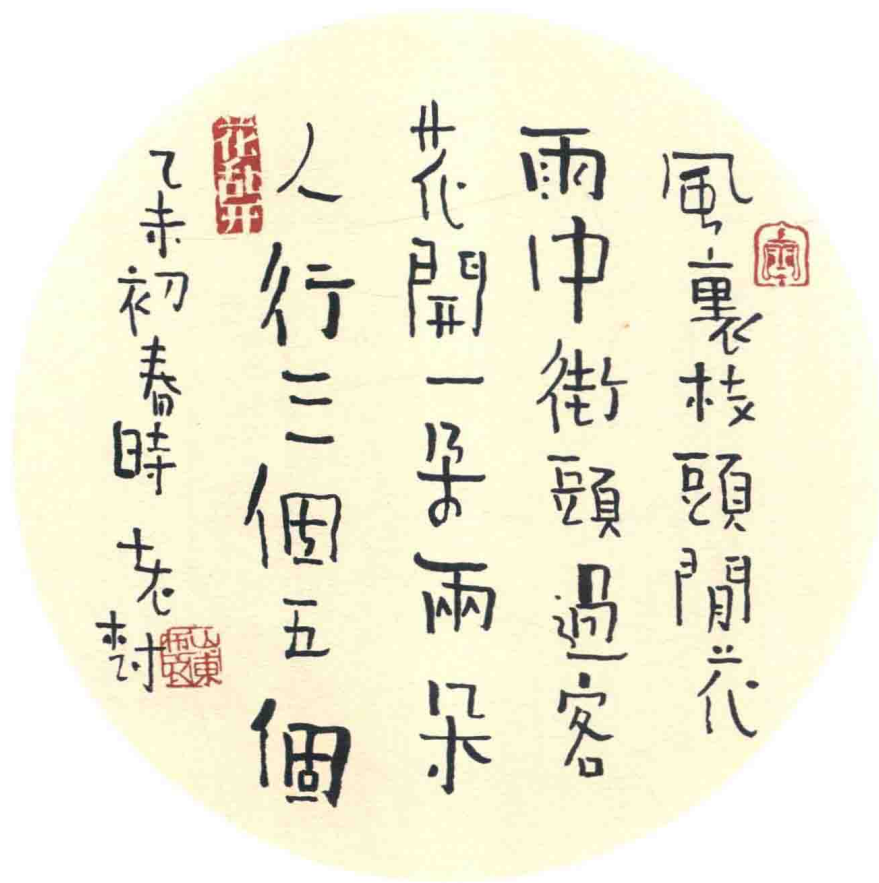 風裏枝頭閒花
雨中街頭過客
花開一朵兩朵
人行三個五個
花乱开
乙未初春時 老樹
山東